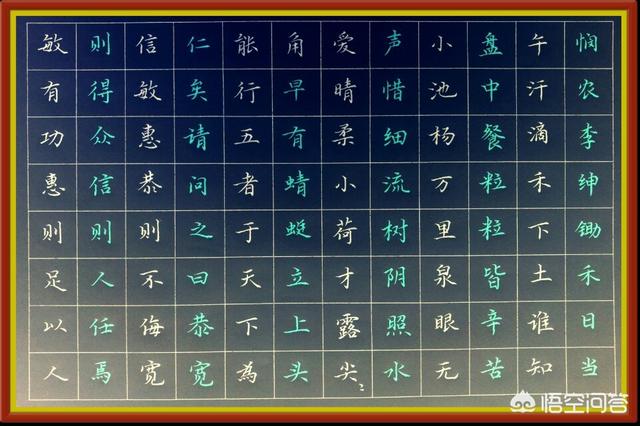 悯农李绅锄禾日当
午汗滴禾下土谁知
盘中餐粒粒皆辛苦
小池杨万里泉眼无
声惜细流树阴照水
爱晴柔小荷才露尖〻
角早有蜻蜓立上头
能行五者于天下為
仁矣请问之曰恭宽
信敏惠恭则不侮宽
则得众信则人任焉
敏有功惠则足以人
悟空问答